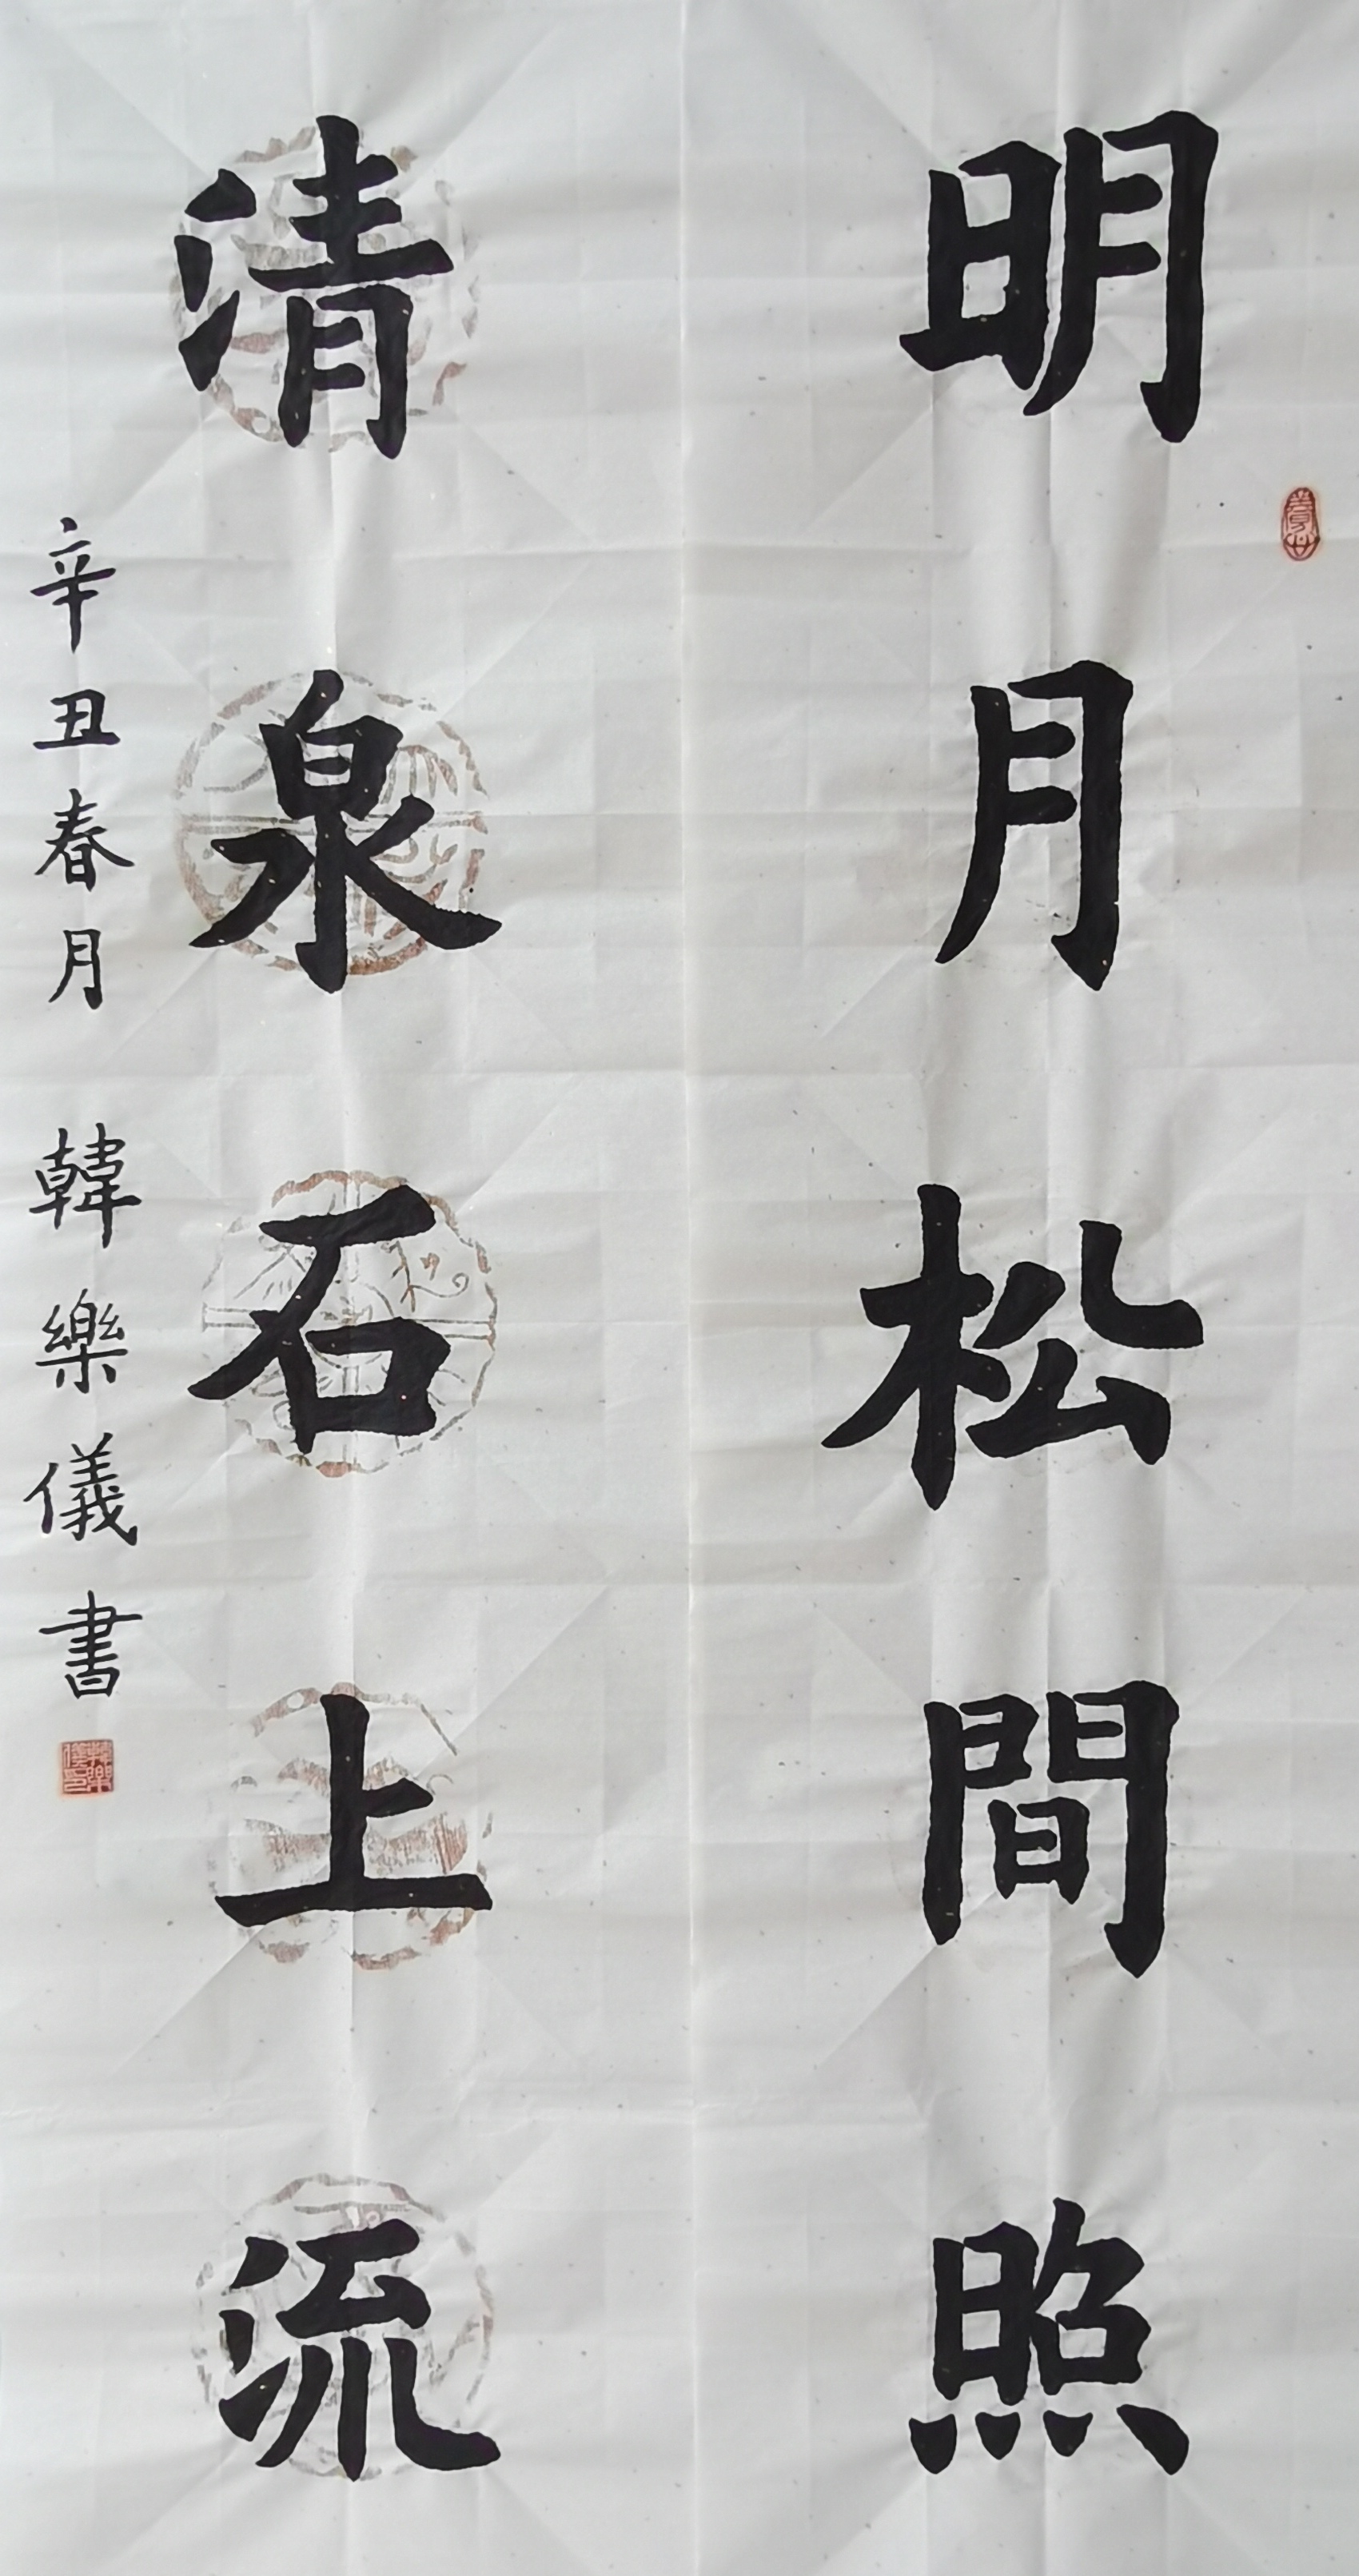 明月松間照
清泉石上流
辛丑春月 韓樂儀書